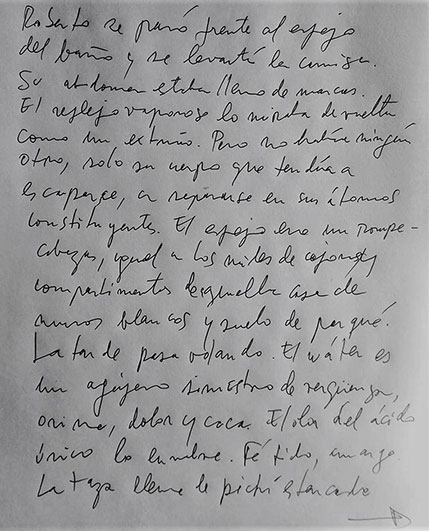 Roberto se paró frente al espejo
del baño y se levantó la camisa.
Su abdomen estaba lleno de marcas.
El reflejo vaporoso lo miraba de vuelta
como un extraño. Pero no había ningún
otro, solo su cuerpo que tendía a
escaparse, a separarse en sus átomos
constituyentes. El espejo era un rompe-
cabezas, igual a los miles de cajones y
compartimentos de aquella casa de
muros blancos y suelo de parqué.
La tarde pasa volando. El wáter es
un agujero siniestro de vergüenza,
orina, dolor y caca. El olor del ácido
único lo encubre. Fétido, amargo.
La taza llena de pichí estancado